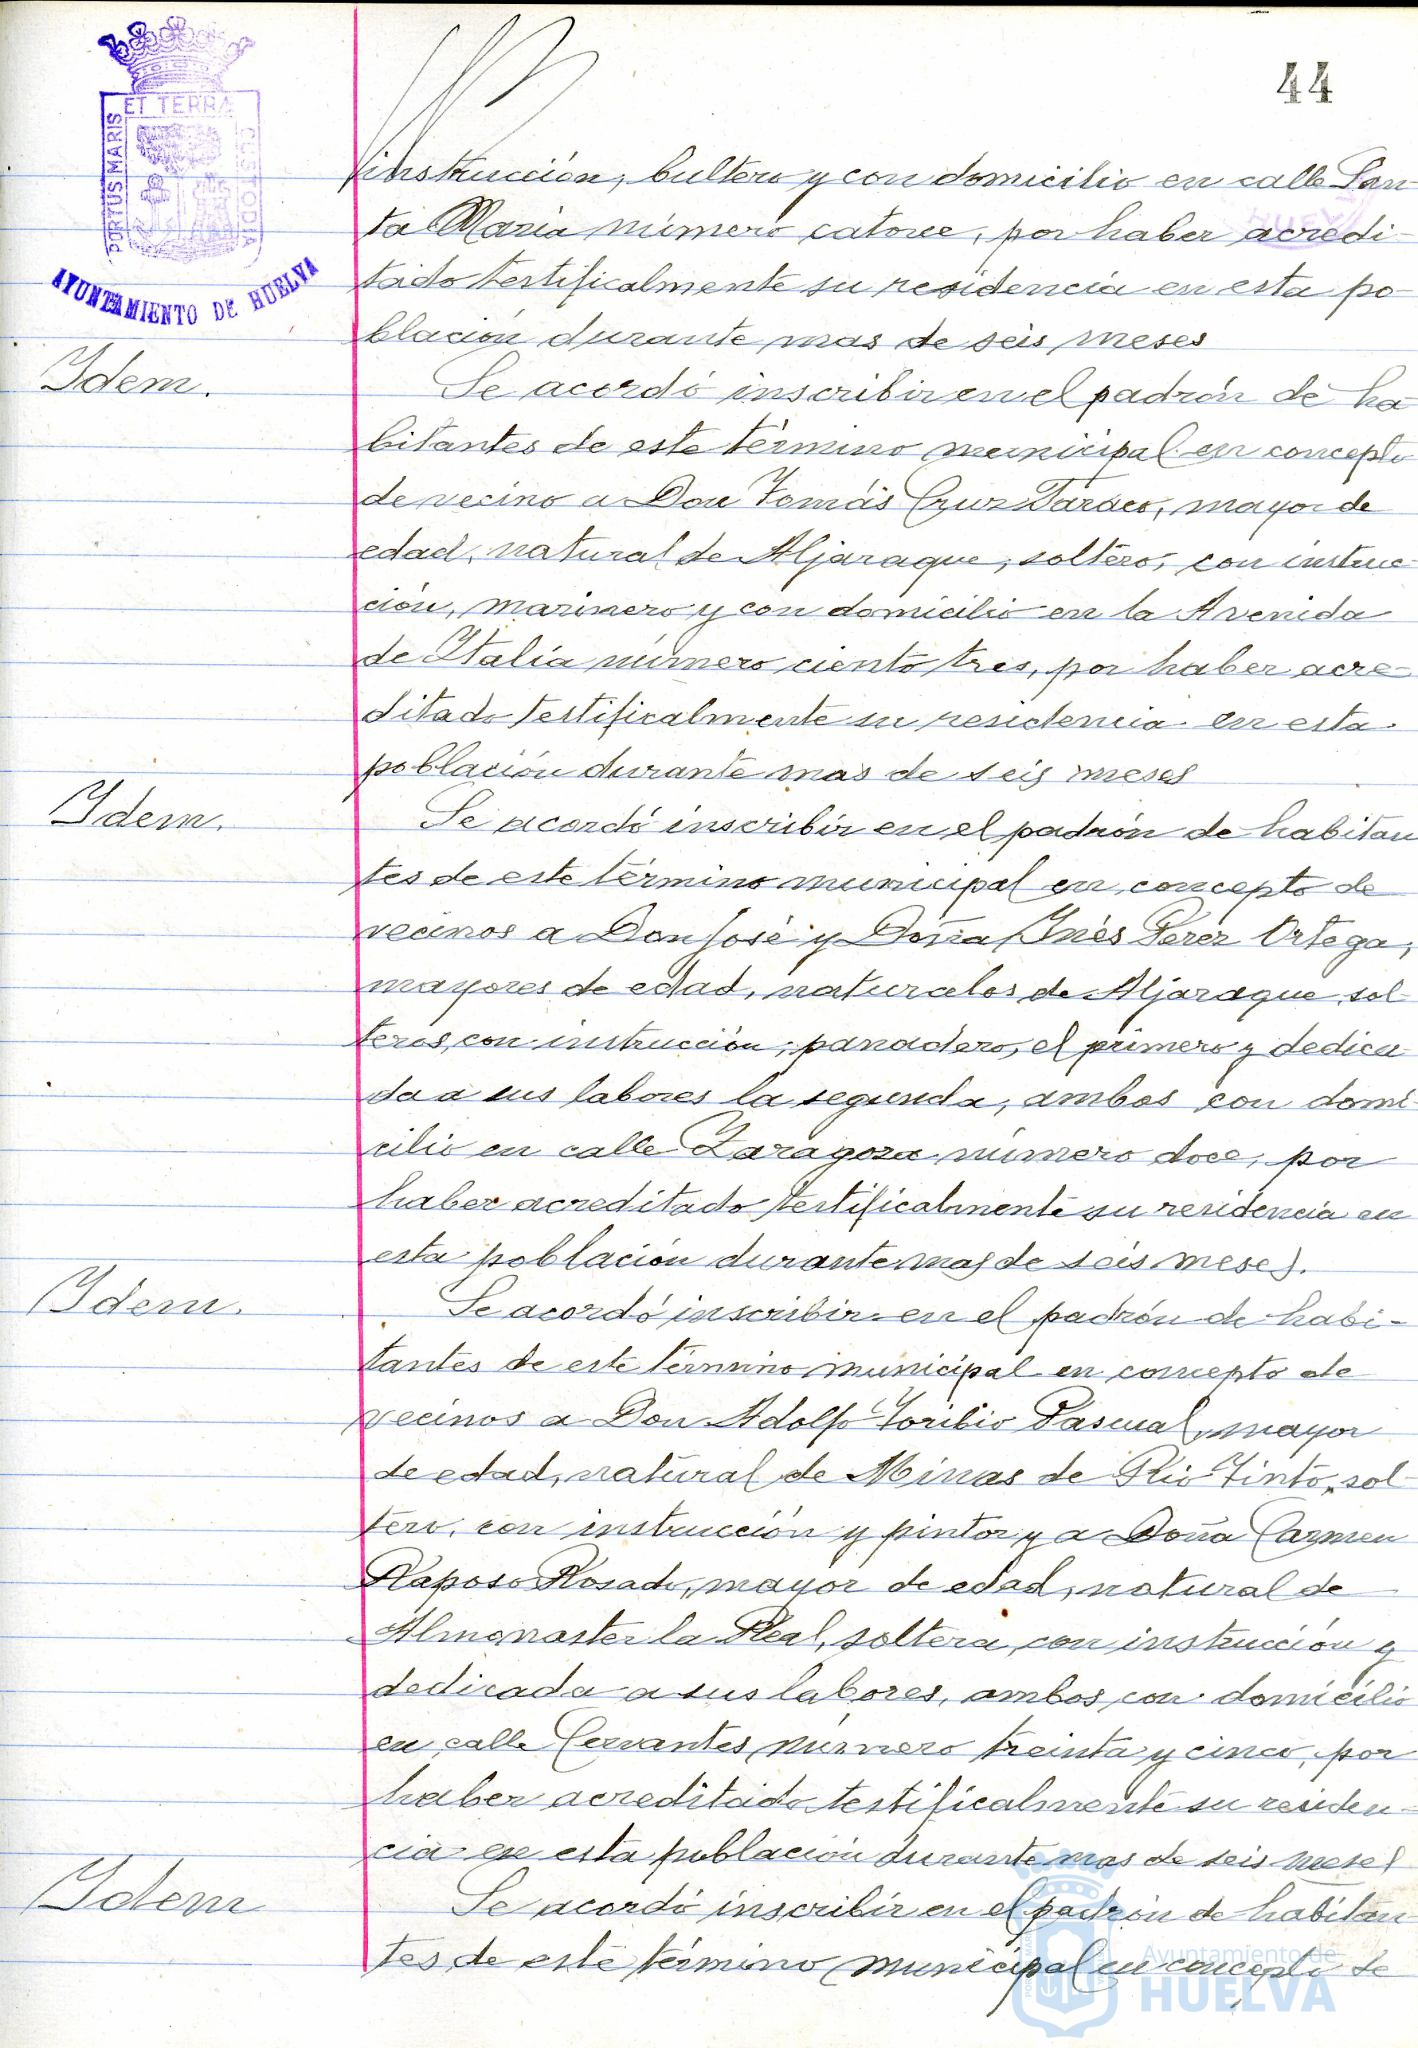 44
ET TERRA
PORTUS MARIS
CUSTODIA
AYUNTAMIENTO DE HUELVA
instrucción, bultero y con domicilio en calle San-
ta Maria número catorce, por haber acredi-
tado testificalmente su residencia en esta po-
blación durante mas de seis meses
Idem.
Se acordó inscribir en el padrón de ha-
bitantes de este término municipal en concepto
de vecino a Don Tomás Cruz, mayor de
edad, natural de Aljaraque, soltero, con instruc-
ción, marinero y con domicilio en la Avenida
de Italia número ciento tres, por haber acre-
ditado testificalmente su residencia en esta
población durante mas de seis meses
Idem.
Se acordó inscribir en el padrón de habitan
tes de este término municipal en concepto de
vecinos a Don José y Doña Inés Pérez Ortega,
mayores de edad, naturales de Aljaraque, sol-
teros, con instrucción, panadero, el primero y dedica
da a sus labores la segunda, ambos con domi-
cilio en calle Zaragoza número doce, por
haber acreditado testificalmente su residencia en
esta población durante mas de seis meses.
Idem.
Se acordó inscribir en el padrón de habi-
tantes de este término municipal en concepto de
vecinos a Don Adolfo Toribio Pascual, mayor
de edad, natural de Minas de Rio Tinto, sol-
tero, con instrucción y pintor y a Doña Carmen
Raposo Rosado, mayor de edad, natural de
Almonaster la Real, soltera, con instrucción y
dedicada a sus labores, ambos con domicilio
en calle Cervantes número treinta y cinco, por
haber acreditado testificalmente su residen-
cia en esta población durante mas de seis meses
Idem
Se acordó inscribir en el padrón de habitan-
tes de este término municipal en concepto de
Ayuntamiento de
HUELVA